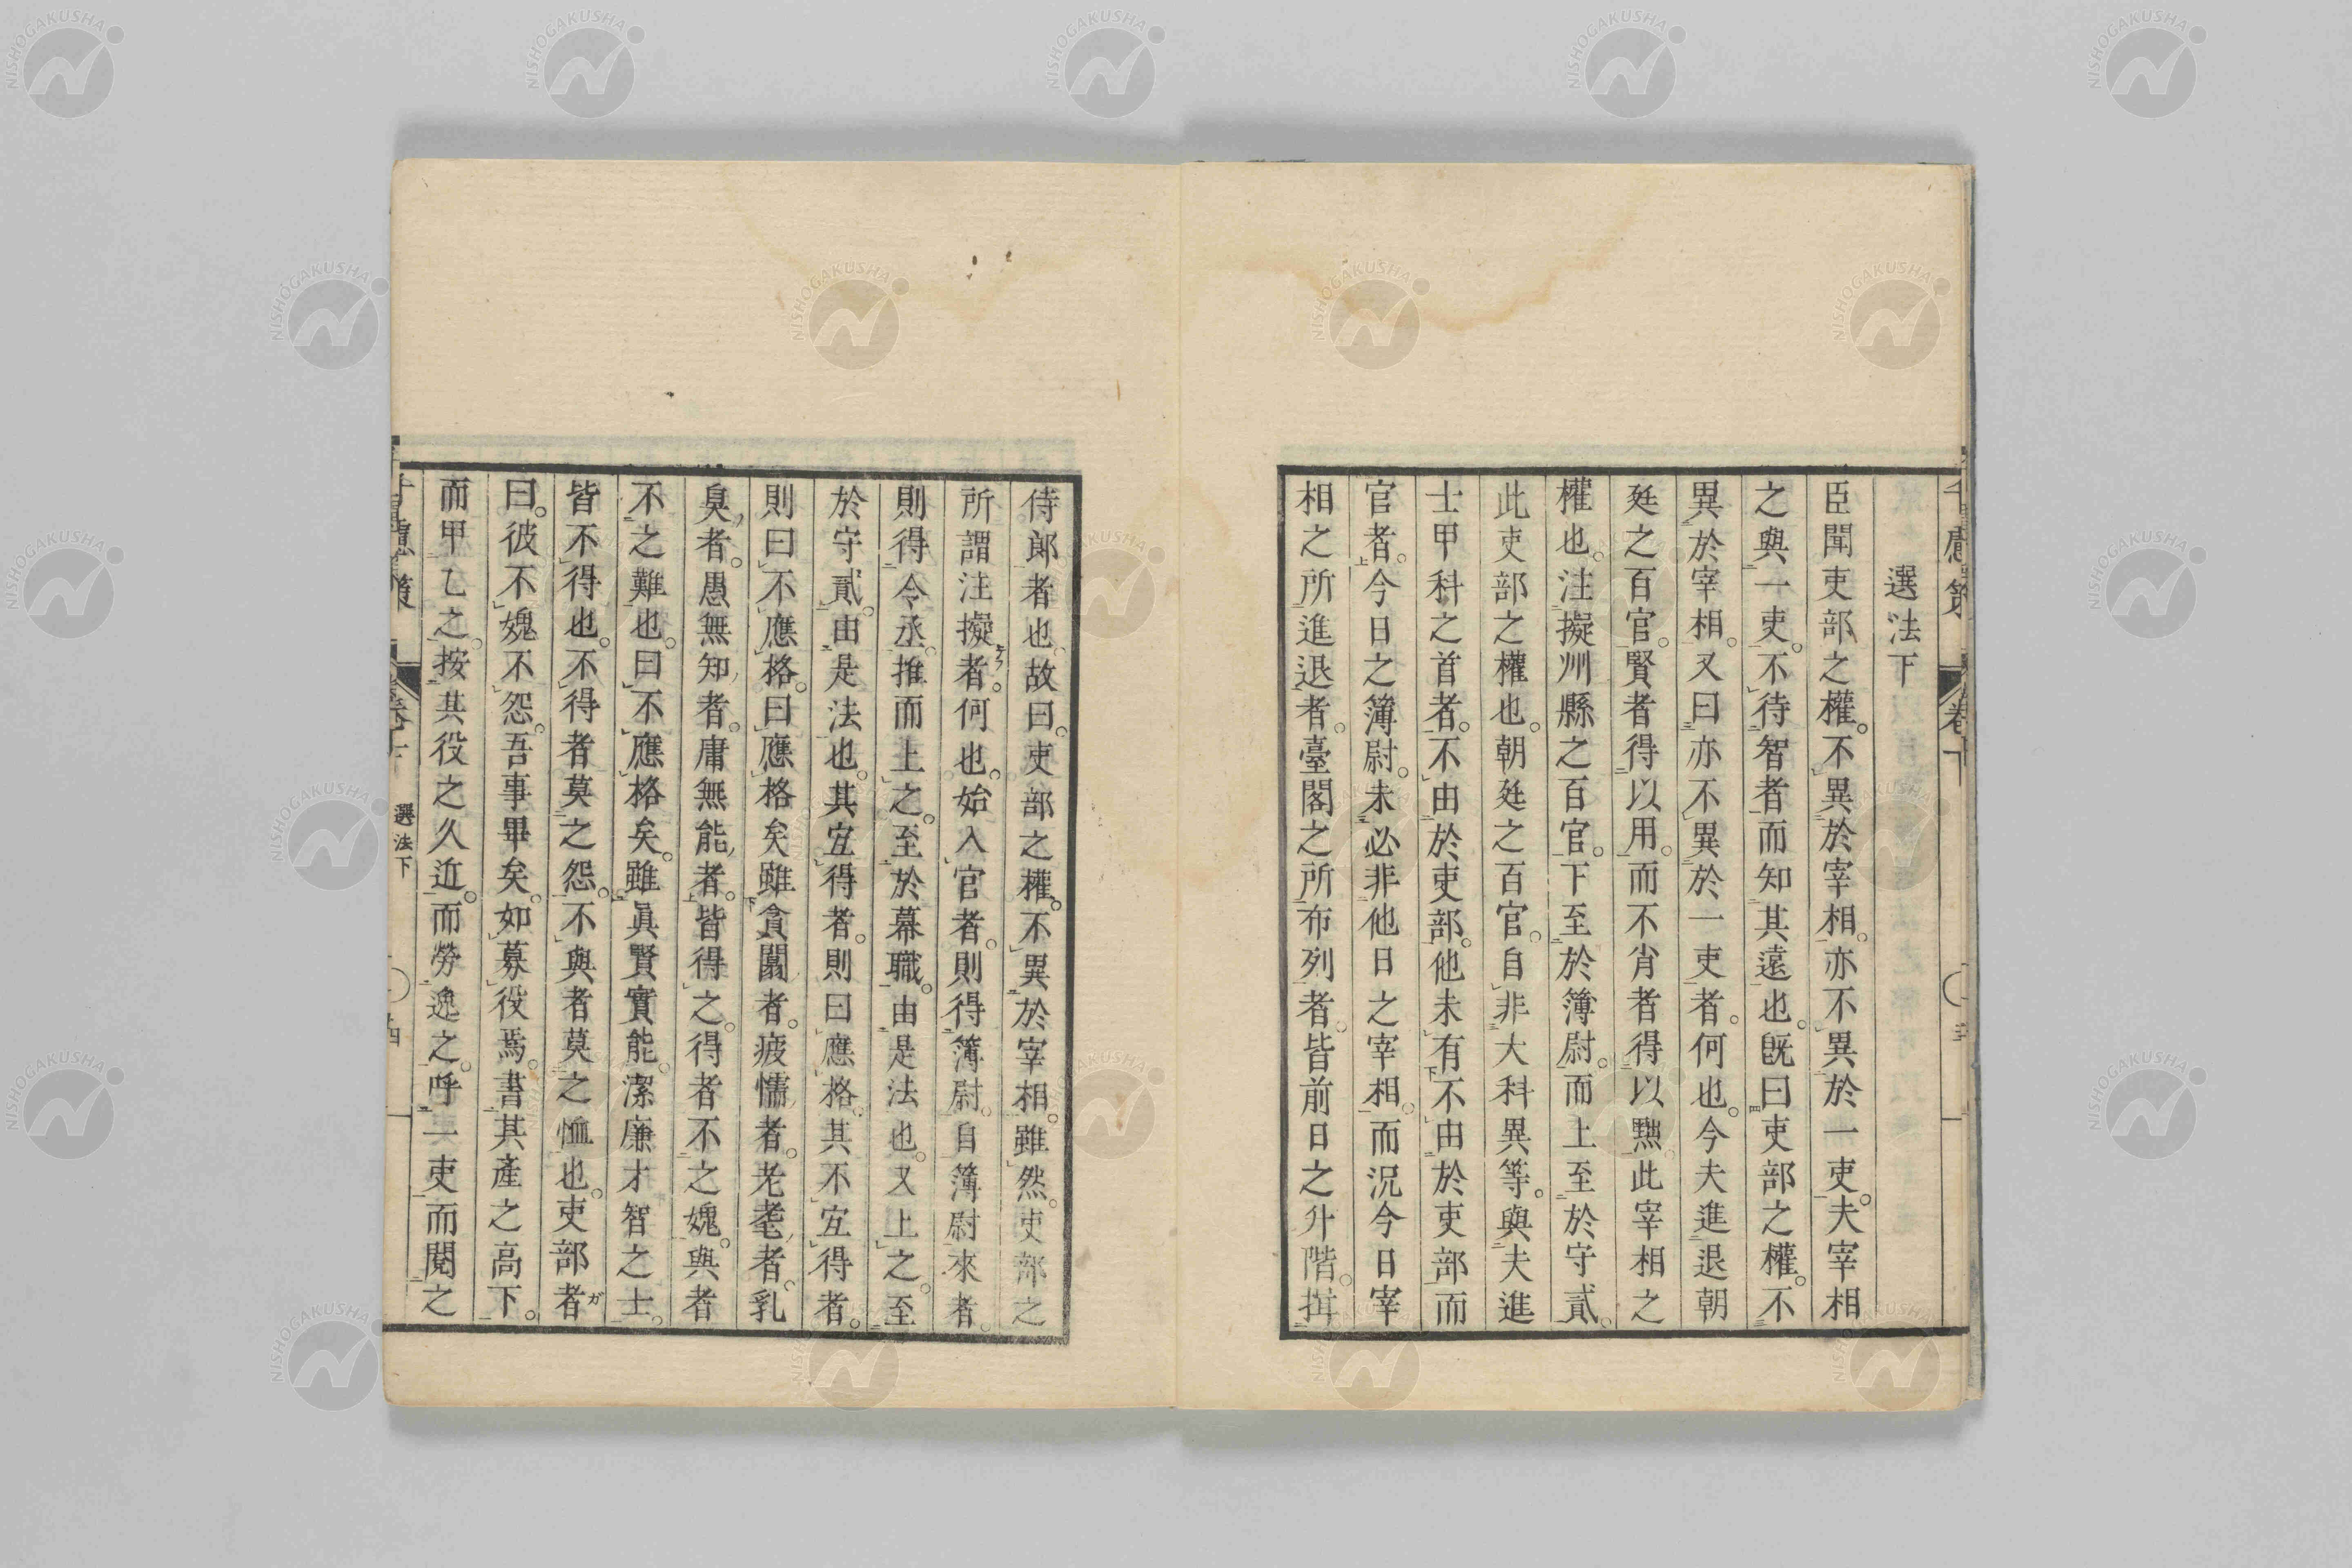 選法下
臣聞吏部之權。不異於宰相。亦不異於一吏。夫宰相
之與一吏。不待智者而知其遠也。既曰吏部之權。不
異於宰相。又曰亦不異於一吏者。何也。今夫進退朝
廷之百官。賢者得以用。而不肖者得以黜此宰相之
權也。注擬州縣之百官。下至於簿尉。而上至於守貳。
此吏部之權也。朝廷之百官。自非大科異等。與夫進
士甲科之首者。不由於吏部。他未有不由於吏部而
官者。今日之簿尉。未必非他日之宰相。而況今日宰
相之所進退者。臺閣之所布列者。皆前日之升階。揖
侍郎者也。故曰。吏部之權。不異於宰相。雖然。吏部之
所謂注擬者。何也。始入官者。則得簿尉。自簿尉來者。
則得令丞。推而上之。至於幕職。由是法也。又上之。至
於守貳。由是法也。其宜得者。則曰應格。其不宜得者。
則曰不應格。曰應格矣雖貪闒者。疲懦者。老耄者。乳
臭者。愚無知者。庸無能者。皆得之。得者不之媿。與者
不之難也。曰不應格矣。雖眞賢實能。潔廉才智之士。
皆不得也。不得者莫之怨。不與者莫之恤也。吏部者
曰。彼不媿不怨。吾事畢矣。如募役焉。書其產之高下。
而甲乙之。按其役之久近。而勞逸之。呼一吏而閱之
選法下